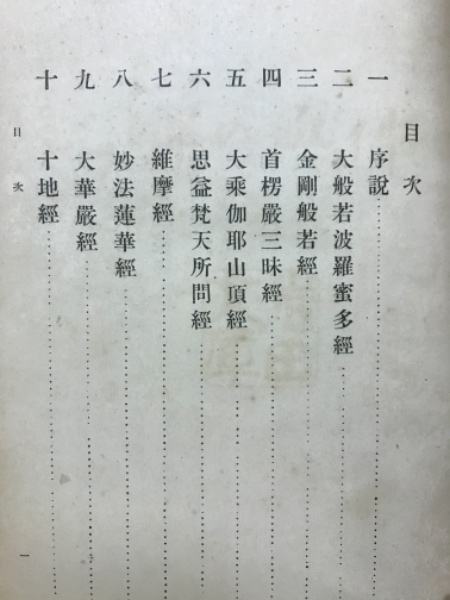 目次
一 序説
二 大般若波羅蜜多經
三 金剛般若經
四 首楞嚴三昧經
五 大乘伽耶山頂經
六 思益梵天所問經
七 維摩經
八 妙法蓮華經
九 大華嚴經
十 十地經
目次
一